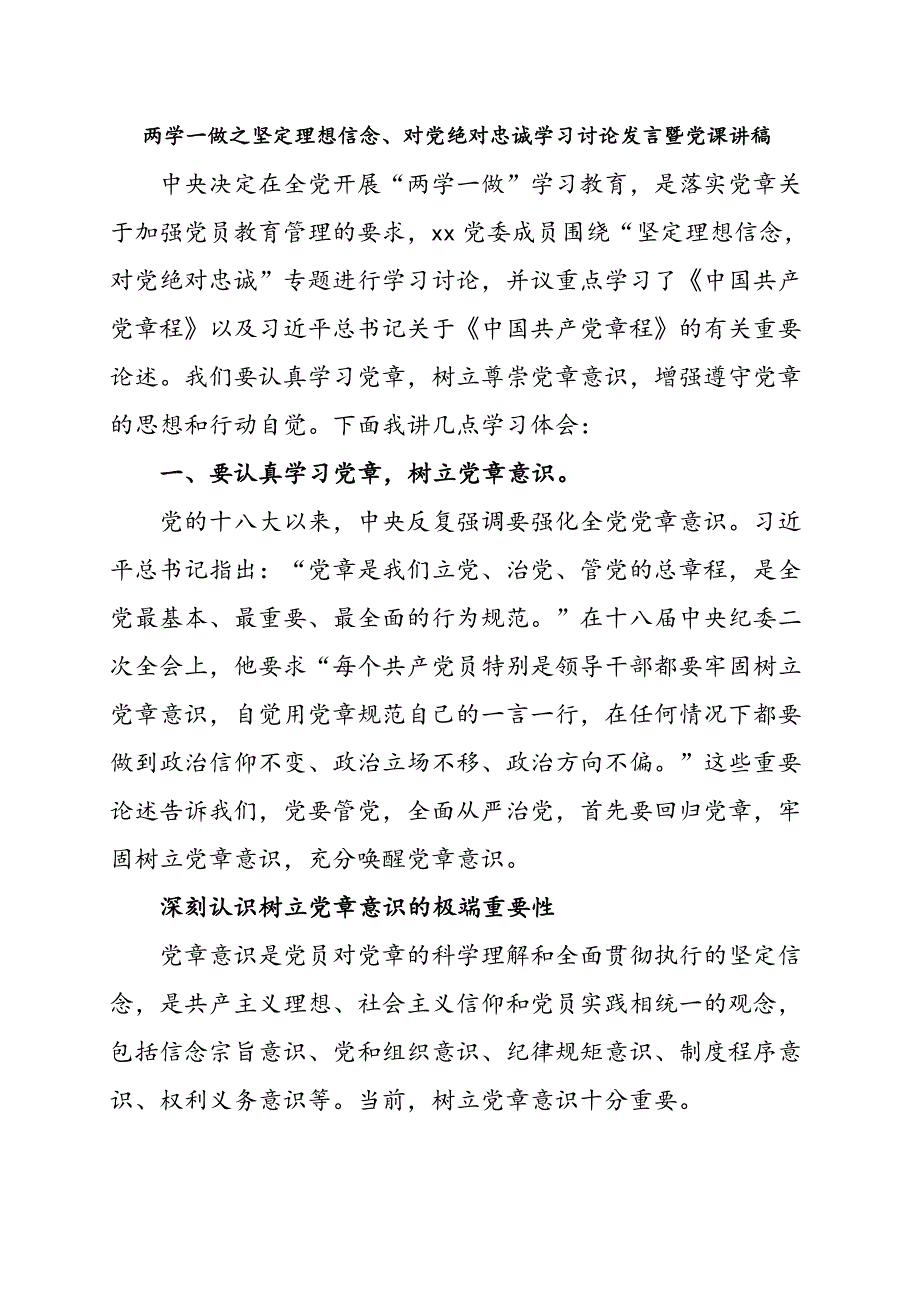 两学一做之坚定理想信念、对党绝对忠诚学习讨论发言暨党课讲稿
中央决定在全党开展“两学一做”学习教育，是落实党章关
于加强党员教育管理的要求，xx 党委成员围绕“坚定理想信念，
对党绝对忠诚”专题进行学习讨论，并议重点学习了《中国共产
党章程》以及习近平总书记关于《中国共产党章程》的有关重要
论述。我们要认真学习党章，树立尊崇党章意识，增强遵守党章
的思想和行动自觉。下面我讲几点学习体会：
一、要认真学习党章，树立党章意识。
党的十八大以来，中央反复强调要强化全党党章意识。习近
平总书记指出：“党章是我们立党、治党、管党的总章程，是全
党最基本、最重要、最全面的行为规范。”在十八届中央纪委二
次全会上，他要求“每个共产党员特别是领导干部都要牢固树立
党章意识，自觉用党章规范自己的一言一行，在任何情况下都要
做到政治信仰不变、政治立场不移、政治方向不偏。”这些重要
论述告诉我们，党要管党，全面从严治党，首先要回归党章，牢
固树立党章意识，充分唤醒党章意识。
深刻认识树立党章意识的极端重要性
党章意识是党员对党章的科学理解和全面贯彻执行的坚定信
念，是共产主义理想、社会主义信仰和党员实践相统一的观念，
包括信念宗旨意识、党和组织意识、纪律规矩意识、制度程序意
识、权利义务意识等。当前，树立党章意识十分重要。